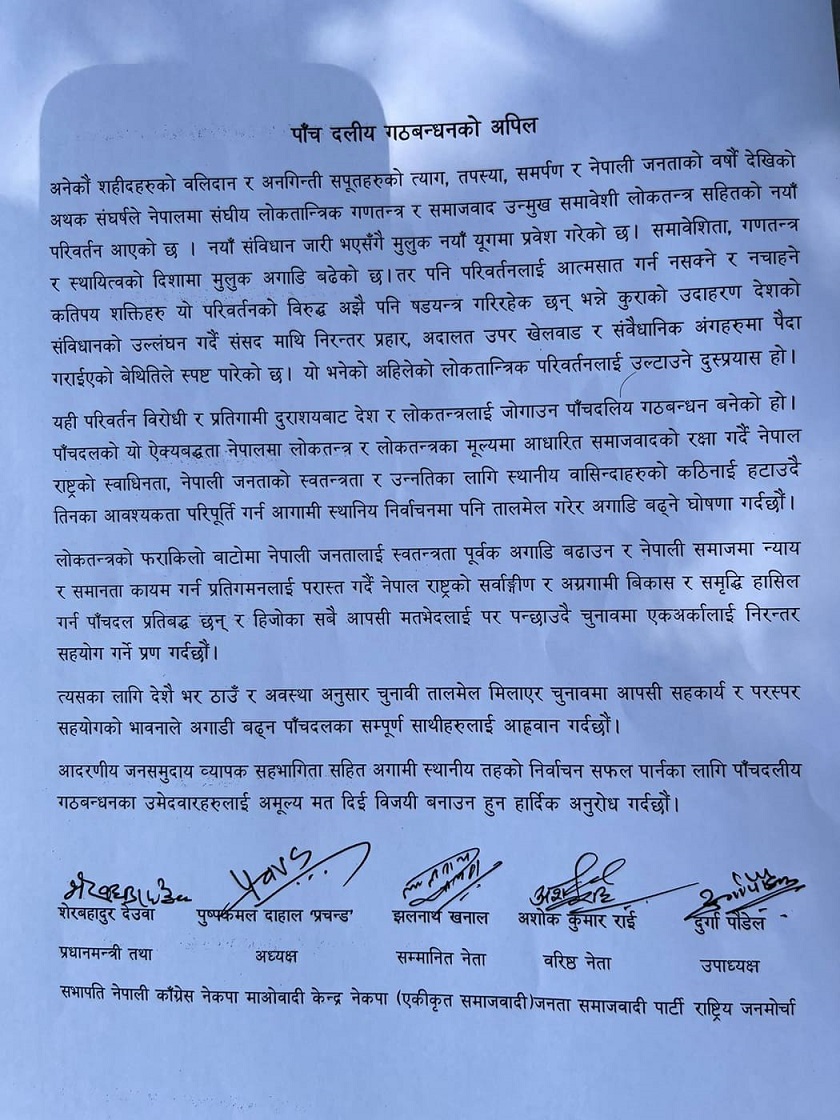 पाँच दलीय गठबन्धनको अपिल
अनेकौं शहीदहरुको वलिदान र अनगिन्ती सपूतहरुको त्याग, तपस्या, समर्पण र नेपाली जनताको वर्षौं देखिको
अथक संघर्षले नेपालमा संघीय लोकतान्त्रिक गणतन्त्र र समाजवाद उन्मुख समावेशी लोकतन्त्र सहितको नयाँ
परिवर्तन आएको छ । नयाँ संविधान जारी भएसँगै मुलुक नयाँ यूगमा प्रवेश गरेको छ। समावेशिता, गणतन्त्र
र स्थायित्वको दिशामा मुलुक अगाडि बढेको छ।तर पनि परिवर्तनलाई आत्मसात गर्न नसक्ने र नचाहने
कतिपय शक्तिहरु यो परिवर्तनको विरुद्ध अझै पनि षडयन्त्र गरिरहेक छन् भन्ने कुराको उदाहरण देशको
संविधानको उल्लंघन गर्दै संसद माथि निरन्तर प्रहार, अदालत उपर खेलवाड र संवैधानिक अंगहरुमा पैदा
गराईएको बेथितिले स्पष्ट पारेको छ। यो भनेको अहिलेको लोकतान्त्रिक परिवर्तनलाई उल्टाउने दुस्प्रयास हो।
यही परिवर्तन विरोधी र प्रतिगामी दुराशयबाट देश र लोकतन्त्रलाई जोगाउन पाँचदलिय गठबन्धन बनेको हो।
पाँचदलको यो ऐक्यबद्धता नेपालमा लोकतन्त्र र लोकतन्त्रका मूल्यमा आधारित समाजवादको रक्षा गर्दै नेपाल
राष्ट्रको स्वाधिनता, नेपाली जनताको स्वतन्त्रता र उन्नतिका लागि स्थानीय वासिन्दाहरुको कठिनाई हटाउदै
तिनका आवश्यकता परिपूर्ति गर्न आगामी स्थानिय निर्वाचनमा पनि तालमेल गरेर अगाडि बढ्ने घोषणा गर्दछौं।
लोकतन्त्रको फराकिलो बाटोमा नेपाली जनतालाई स्वतन्त्रता पूर्वक अगाडि बढाउन र नेपाली समाजमा न्याय
र समानता कायम गर्न प्रतिगमनलाई परास्त गर्दै नेपाल राष्ट्रको सर्वाङ्गीण र अग्रगामी विकास र समृद्धि हासिल
गर्न पाँचदल प्रतिबद्ध छन् र हिजोका सबै आपसी मतभेदलाई पर पन्छाउदै चुनावमा एकअर्कालाई निरन्तर
सहयोग गर्ने प्रण गर्दछौं।
त्यसका लागि देशै भर ठाउँ र अवस्था अनुसार चुनावी तालमेल मिलाएर चुनावमा आपसी सहकार्य र परस्पर
सहयोगको भावनाले अगाडी बढ्न पाँचदलका सम्पूर्ण साथीहरुलाई आह्रवान गर्दछौं।
आदरणीय जनसमुदाय व्यापक सहभागिता सहित अगामी स्थानीय तहको निर्वाचन सफल पार्नका लागि पाँचदलीय
गठबन्धनका उमेदवारहरुलाई अमूल्य मत दिई विजयी बनाउन हुन हार्दिक अनुरोध गर्दछौं।
शेरबहादुर देउवा पुष्पकमल दाहाल 'प्रचन्ड' झलनाथ खनाल अशोक कुमार राई दुर्गा पौडेल
प्रधानमन्त्री तथा अध्यक्ष सम्मानित नेता वरिष्ठ नेता उपाध्यक्ष
सभापति नेपाली काँग्रेस नेकपा माओवादी केन्द्र नेकपा (एकीकृत समाजवादी)जनता समाजवादी पार्टी राष्ट्रिय जनमोर्चा